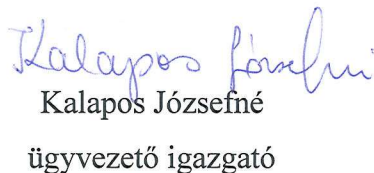 Kalapos Józsefné
Kalapos Józsefné
ügyvezető igazgató